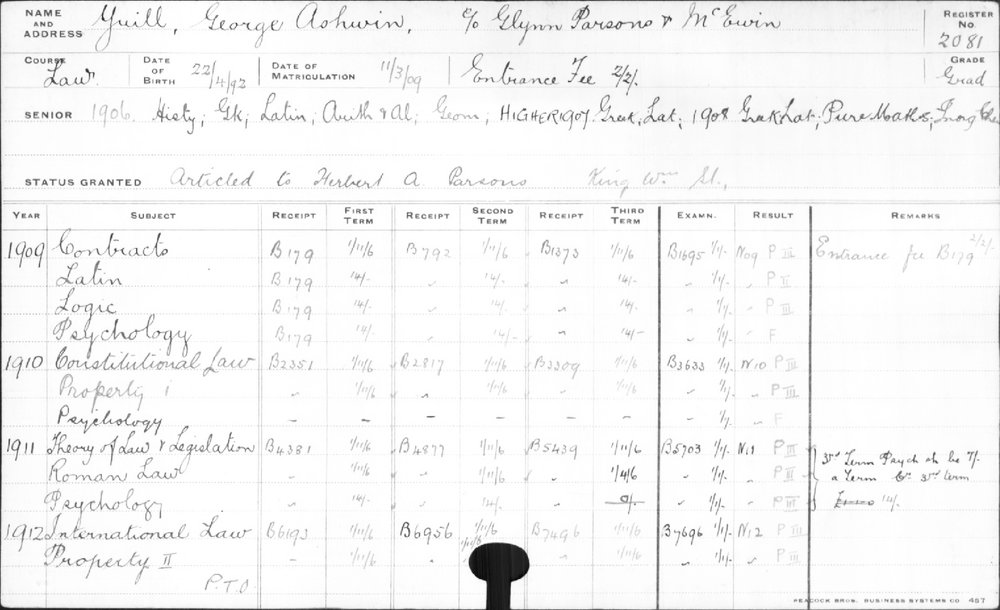 NAME AND ADDRESS Yuill, George Ashwin, c/o Glynn Parsons & McEwin REGISTER No. 2081
COURSE Law DATE OF BIRTH 22/4/92 DATE OF MATRICULATION 11/3/09 Entrance Fee 2/2/. GRADE Grad
SENIOR 1906. Histy, Gk, Latin, Arith & Al, Geom, HIGHER 1907 Greek, Lat; 1908 Greek Lat, Pure Maths, Inorg Che
STATUS GRANTED Articled to Herbert A Parsons King Wm St.,
YEAR SUBJECT RECEIPT FIRST TERM RECEIPT SECOND TERM RECEIPT THIRD TERM EXAMN. RESULT REMARKS
1909 Contracts B179 1/11/6 B792 1/11/6 B1373 1/11/6 B1695 1/1/- Nov9 P III Entrance fee B179 2/2/-
Latin B179 14/- " 14/- " 14/- " 1/1/- " P II
Logic B179 14/- " 14/- " 14/- " 1/1/- " P II
Psychology B179 14/- " 14/- " 14/- " 1/1/- " F
1910 Constitutional Law B2351 1/11/6 B2817 1/11/6 B3309 1/11/6 B3633 1/1/- N10 P III
Property i " 1/11/6 " 1/11/6 " 1/11/6 " 1/1/- " P III
Psychology – – – – – – " 1/1/- " F
1911 Theory of Law & Legislation B4381 1/11/6 B4877 1/11/6 B5439 1/11/6 B5703 1/1/- N11 P III
Roman Law " 1/11/6 " 1/11/6 " 1/4/6 " 1/1/- " P II 3rd Term Psych sh be 7/- a Term Cr 3rd term
Psychology " 14/- " 14/- " 0/- " 1/1/- " P III 14/-
1912 International Law B6193 1/11/6 B6956 1/11/6 B7496 1/11/6 B7696 1/1/- N12 P III
Property II " 1/11/6 " 1/11/6 " 1/11/6 " 1/1/- " P
P.T.O.
PEACOCK BROS. BUSINESS SYSTEMS CO 457